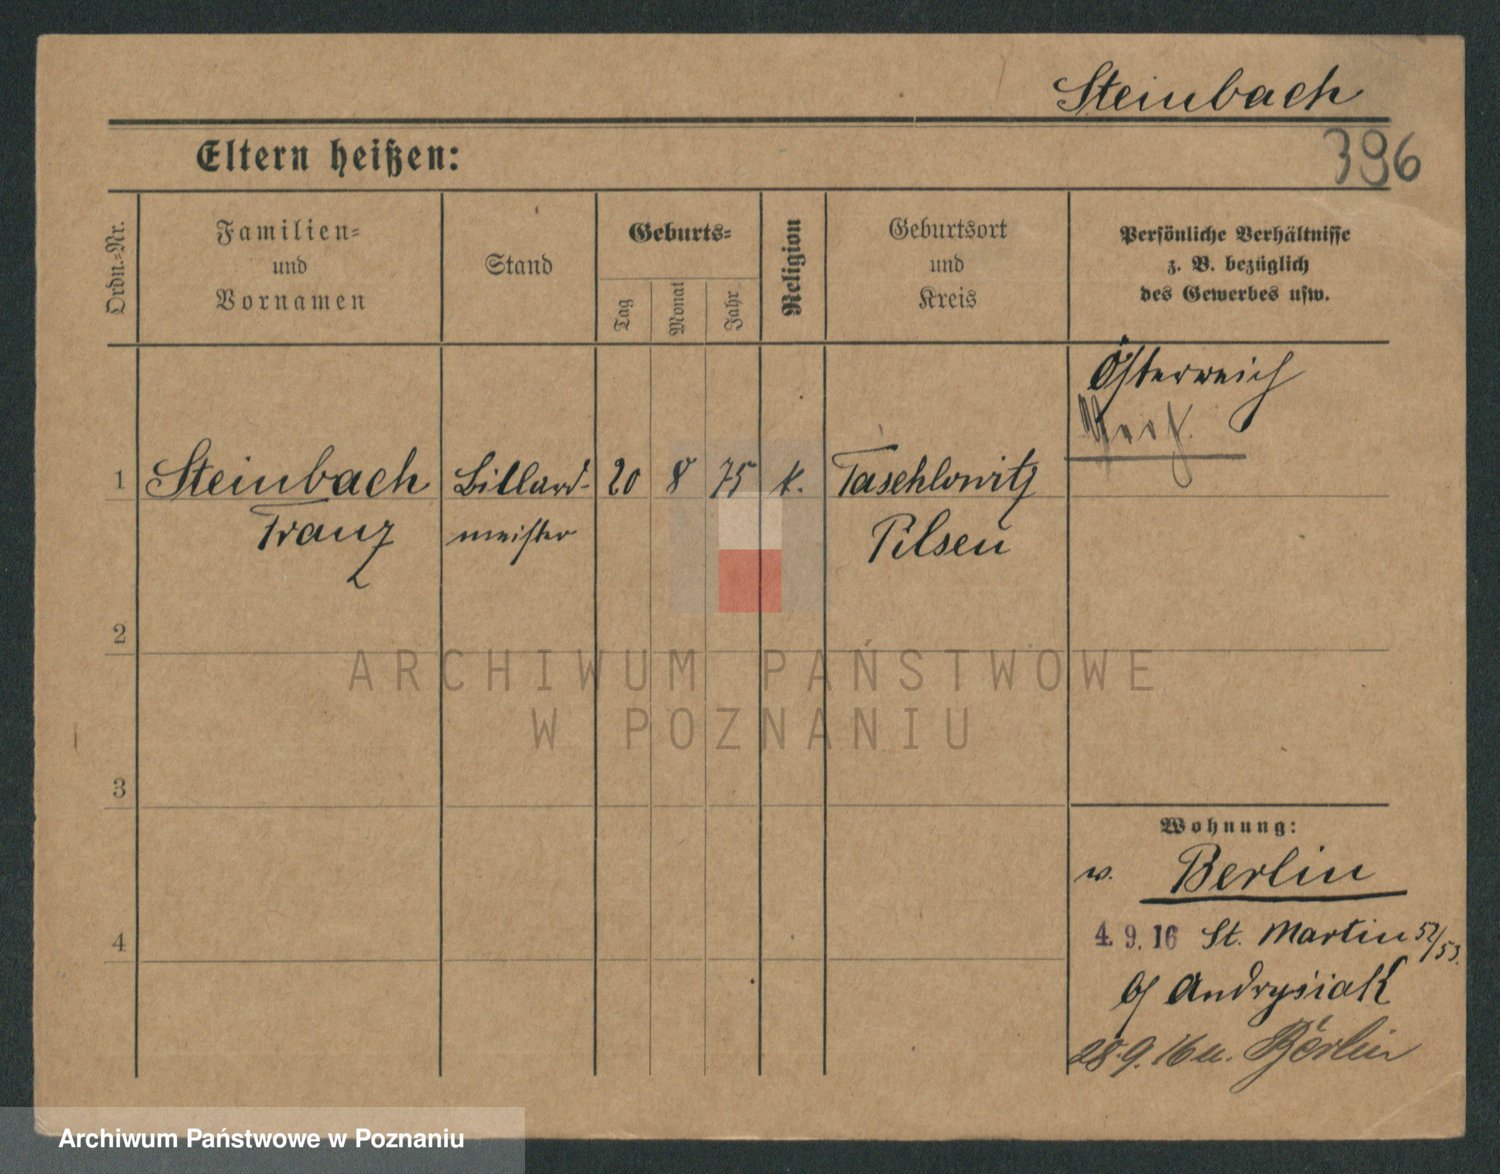 Steinbach
396
Eltern heißen:
Ordn.-Nr.
Familien-
und
Vornamen
Stand
Geburts-
Tag
Monat
Jahr
Religion
Geburtsort
und
Kreis
Persönliche Verhältnisse
z. B. bezüglich
des Gewerbes usw.
Österreich
1 Steinbach Billard- 20 8 75 k. Taschlowitz
Franz meister Pilsen
2
3
4
Wohnung:
w. Berlin
4. 9. 16 St. Martin 52/53.
b/ Andrysiak
28.9.16 u. Berlin
ARCHIWUM PAŃSTWOWE
W POZNANIU
Archiwum Państwowe w Poznaniu